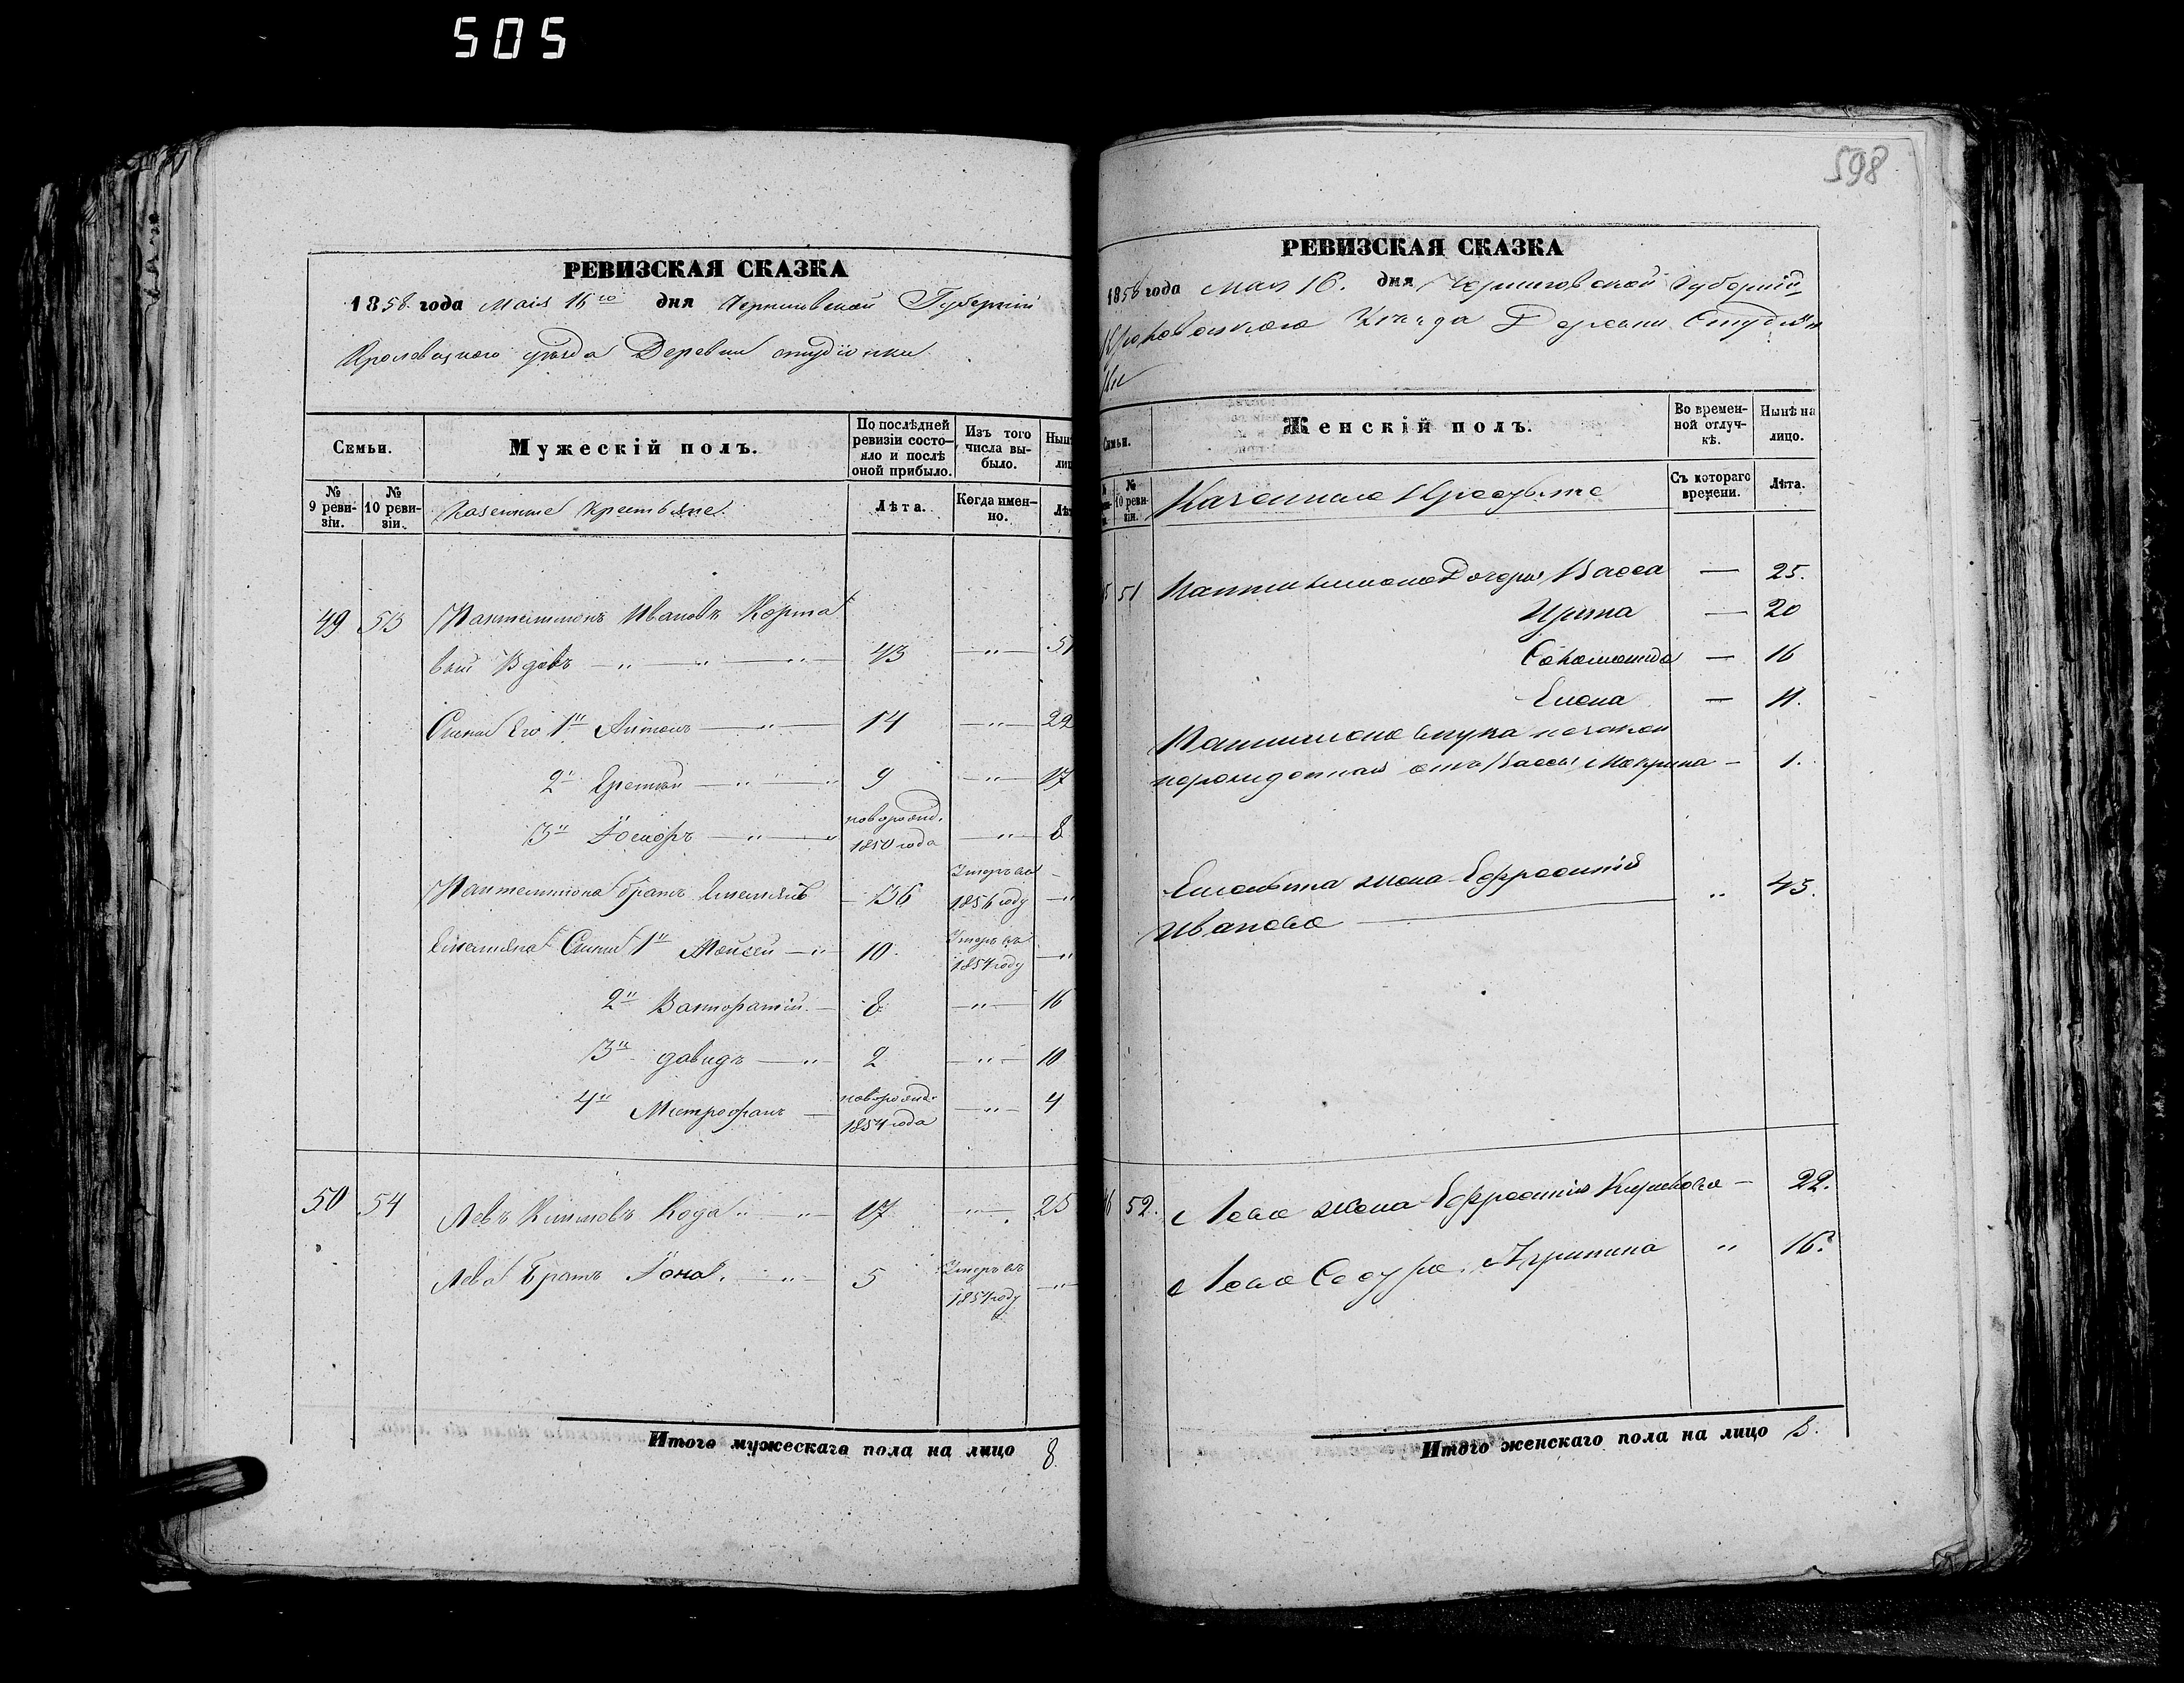 505
РЕВИЗСКАЯ СКАЗКА
1858 года Мая 16го дня Черниговской Губерніи
Кролевецкого уѣзда Деревни студіонки
Семьи.
Мужескій полъ.
По послѣдней ревизіи состояло и послѣ оной прибыло.
Изъ того числа выбыло.
Нын
лиц
№ 9 ревизіи.
№ 10 ревизіи.
Казенные крестьяне
Лѣта.
Когда именно.
Лѣт
49 53 Пантелимонъ Ивановъ
вый Вдовъ 43 — 51
Сыны Его 1й Антонъ 14 — 22
2й 9 — 17
3й новорожд. 1850 года — 8
Пантелимона братъ Емельянъ 36 Умеръ въ 1856 году —
Емельяна Сыны 1й Мойсей 10 Умеръ въ 1854 году —
2й 8 — 16
3й давидъ 2 — 10
4й Митрофанъ новорожд. 1854 года — 4
50 54 Левъ Климовъ Кода 17 — 25
Лева братъ Іона 5 Умеръ въ 1854 году —
Итого мужескаго пола на лицо 8
598
РЕВИЗСКАЯ СКАЗКА
1858 года мая 16. дня Черниговской губерніи
Уѣзда Деревни Студіон
ки
Семьи.
Женскій полъ.
Во временной отлучкѣ.
Нынѣ на лицо.
№ 10 ревизіи.
Казенные Крестьяне
Съ котораго времени.
Лѣта.
51 Пантилимона Дочери Васса — 25.
Ирина — 20
Соломонида — 16
Елена — 11.
внука незакон
норожденная отъ Вассы Мокрина — 1.
Емельяна жена Ефросинія
Иванова 45.
52. Лева жена Ефросинія — 22.
Лева Сестра Агрипина 16.
Итого женскаго пола на лицо 8.